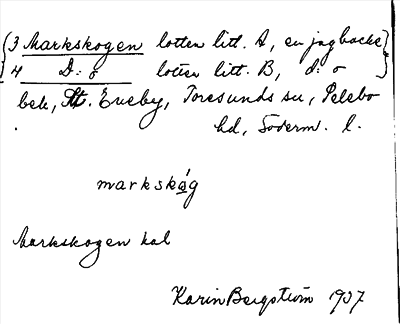 {3 Markskogen lotten litt. A, en jagbacke}
{4 D:o lotten litt. B, d:o}
bek, St. Eneby, Toresunds sn, Selebo
hd, Söderm. l.
markskóg
Markskogen kal
Karin Bergström 1937